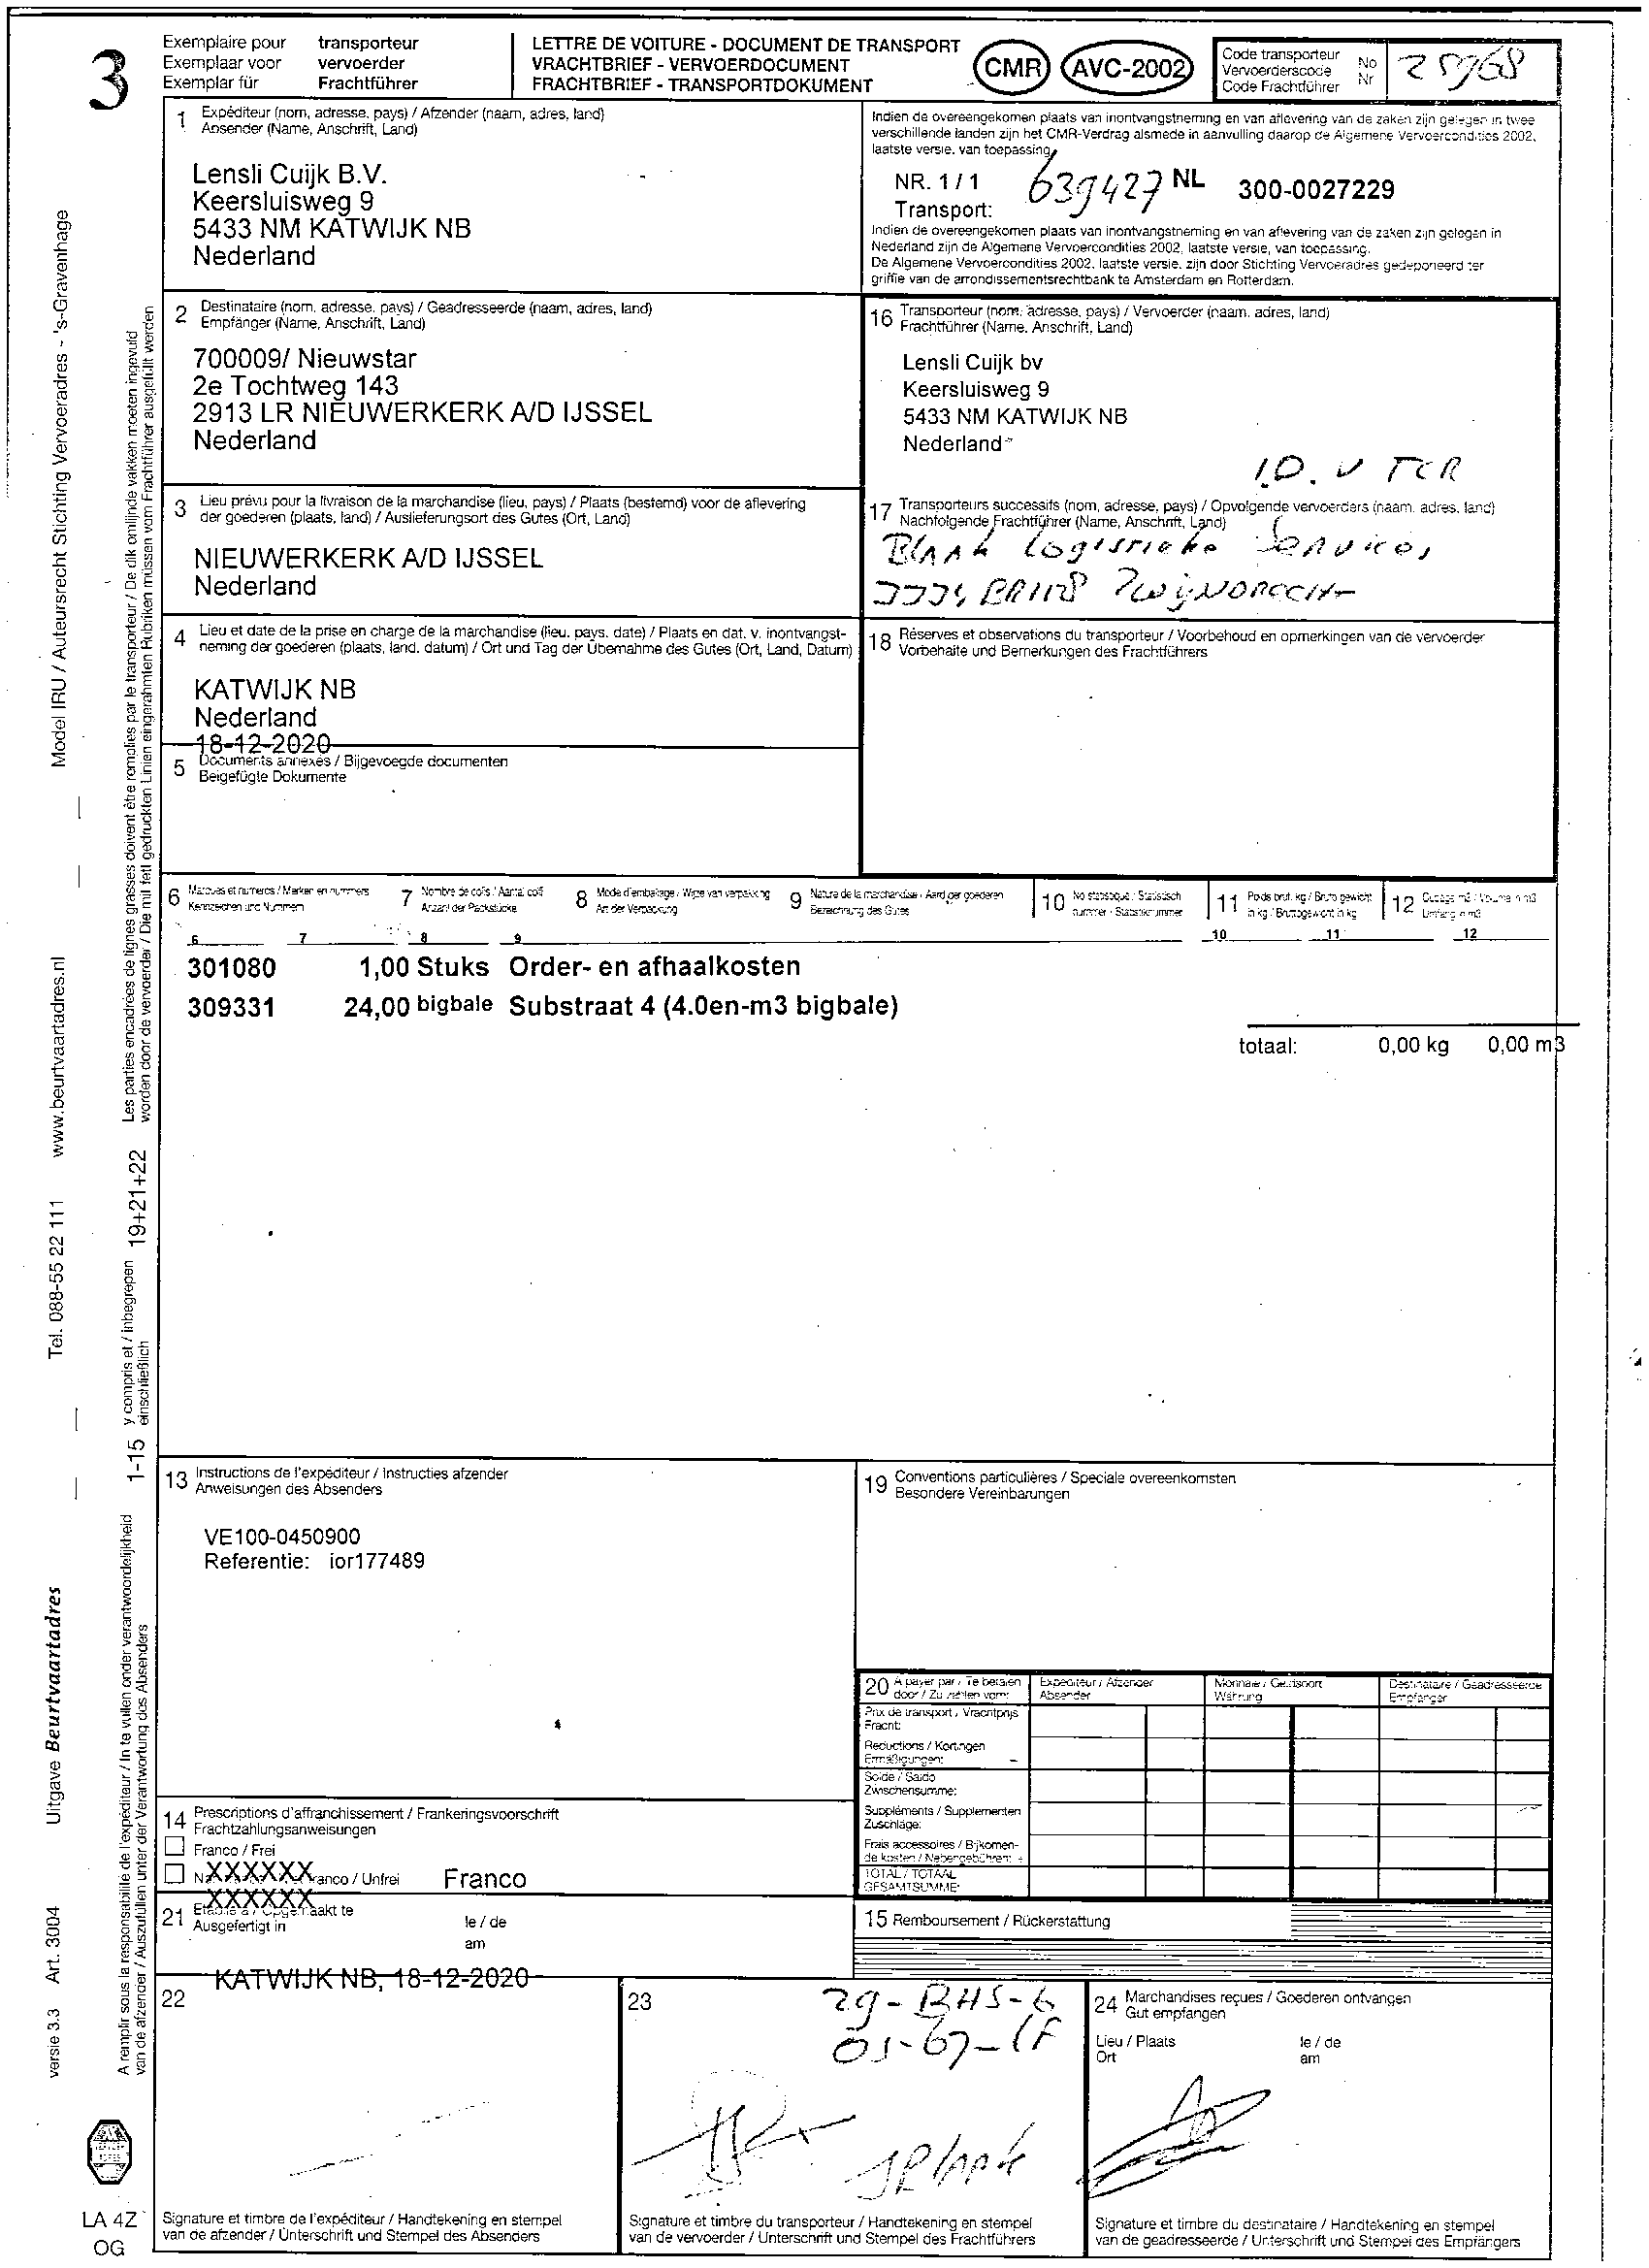 3
Exemplaire pour transporteur
Exemplaar voor vervoerder
Exemplar für Frachtführer
LETTRE DE VOITURE - DOCUMENT DE TRANSPORT
VRACHTBRIEF - VERVOERDOCUMENT
FRACHTBRIEF - TRANSPORTDOKUMENT
CMR AVC-2002
Code transporteur
Vervoerderscode
Code Frachtführer
No
Nr
25968
1 Expéditeur (nom, adresse, pays) / Afzender (naam, adres, land)
Absender (Name, Anschrift, Land)
Lensli Cuijk B.V.
Keersluisweg 9
5433 NM KATWIJK NB
Nederland
Indien de overeengekomen plaats van inontvangstneming en van aflevering van de zaken zijn gelegen in twee
verschillende landen zijn het CMR-Verdrag alsmede in aanvulling daarop de Algemene Vervoercondities 2002,
laatste versie, van toepassing.
NR. 1 / 1 639427 NL 300-0027229
Transport:
Indien de overeengekomen plaats van inontvangstneming en van aflevering van de zaken zijn gelegen in
Nederland zijn de Algemene Vervoercondities 2002, laatste versie, van toepassing.
De Algemene Vervoercondities 2002, laatste versie, zijn door Stichting Vervoeradres gedeponeerd ter
griffie van de arrondissementsrechtbank te Amsterdam en Rotterdam.
2 Destinataire (nom, adresse, pays) / Geadresseerde (naam, adres, land)
Empfänger (Name, Anschrift, Land)
700009/ Nieuwstar
2e Tochtweg 143
2913 LR NIEUWERKERK A/D IJSSEL
Nederland
16 Transporteur (nom, adresse, pays) / Vervoerder (naam, adres, land)
Frachtführer (Name, Anschrift, Land)
Lensli Cuijk bv
Keersluisweg 9
5433 NM KATWIJK NB
Nederland
I.O. V TCR
3 Lieu prévu pour la livraison de la marchandise (lieu, pays) / Plaats (bestemd) voor de aflevering
der goederen (plaats, land) / Auslieferungsort des Gutes (Ort, Land)
NIEUWERKERK A/D IJSSEL
Nederland
17 Transporteurs successifs (nom, adresse, pays) / Opvolgende vervoerders (naam, adres, land)
Nachfolgende Frachtführer (Name, Anschrift, Land)
Blaak Logistieke Services
ZWIJNDRECHT
4 Lieu et date de la prise en charge de la marchandise (lieu, pays, date) / Plaats en dat. v. inontvangst-
neming der goederen (plaats, land, datum) / Ort und Tag der Übernahme des Gutes (Ort, Land, Datum)
KATWIJK NB
Nederland
18-12-2020
18 Réserves et observations du transporteur / Voorbehoud en opmerkingen van de vervoerder
Vorbehalte und Bemerkungen des Frachtführers
5 Documents annexés / Bijgevoegde documenten
Beigefügte Dokumente
6 Marques et numeros / Merken en nummers
Kennzeichen und Nummern
7 Nombre de colis / Aantal colli
Anzahl der Packstücke
8 Mode d'emballage / Wijze van verpakking
Art der Verpackung
9 Nature de la marchandise / Aard der goederen
Bezeichnung des Gutes
10 No statistique / Statistisch
nummer - Statistiknummer
11 Poids brut, kg / Bruto gewicht
in kg / Bruttogewicht in kg
12 Cubage m3 / Volume in m3
Umfang in m3
6 7 8 9 10 11 12
301080 1,00 Stuks Order- en afhaalkosten
309331 24,00 bigbale Substraat 4 (4.0en-m3 bigbale)
totaal: 0,00 kg 0,00 m3
13 Instructions de l'expéditeur / Instructies afzender
Anweisungen des Absenders
VE100-0450900
Referentie: ior177489
19 Conventions particulières / Speciale overeenkomsten
Besondere Vereinbarungen
20 A payer par / Te betalen
door / Zu zahlen vom:
Expediteur / Afzender
Absender
Monnaie / Geldsoort
Währung
Destinataire / Geadresseerde
Empfänger
Prix de transport / Vrachtprijs
Fracht:
Reductions / Kortingen
Ermäßigungen: -
Solde / Saldo
Zwischensumme:
Suppléments / Supplementen
Zuschläge:
Frais accessoires / Bijkomen-
de kosten / Nebengebühren: +
TOTAL / TOTAAL
GESAMTSUMME:
14 Prescriptions d'affranchissement / Frankeringsvoorschrift
Frachtzahlungsanweisungen
Franco / Frei
XXXXXX anco / Unfrei Franco
XXXXXX
21 Etablie à / Opgemaakt te
Ausgefertigt in
le / de
am
KATWIJK NB, 18-12-2020
15 Remboursement / Rückerstattung
22
23
29-BHS-6
24 Marchandises reçues / Goederen ontvangen
Gut empfangen
Lieu / Plaats
Ort
le / de
am
JBlaak
Signature et timbre de l'expéditeur / Handtekening en stempel
van de afzender / Unterschrift und Stempel des Absenders
Signature et timbre du transporteur / Handtekening en stempel
van de vervoerder / Unterschrift und Stempel des Frachtführers
Signature et timbre du destinataire / Handtekening en stempel
van de geadresseerde / Unterschrift und Stempel des Empfängers
Model IRU / Auteursrecht Stichting Vervoeradres - 's-Gravenhage
www.beurtvaartadres.nl
Tel. 088-55 22 111
Uitgave Beurtvaartadres
Art. 3004
versie 3.3
Les parties encadrées de lignes grasses doivent être remplies par le transporteur / De dik omlijnde vakken moeten ingevuld
worden door de vervoerder / Die mit fett gedruckten Linien eingerahmten Rubriken müssen vom Frachtführer ausgefüllt werden
19+21+22
y compris et / inbegrepen
einschließlich
1-15
A remplir sous la responsabilité de l'expéditeur / In te vullen onder verantwoordelijkheid
van de afzender / Auszufüllen unter der Verantwortung des Absenders
LA 4Z
OG